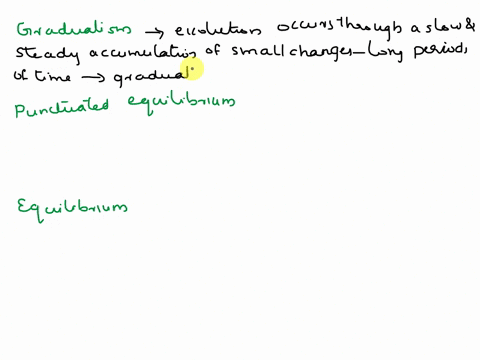 Gradualism → evolution occurs through a slow &
steady accumulation of small changes - long periods
of time → gradual
Punctuated equilibrium
Equilibrium